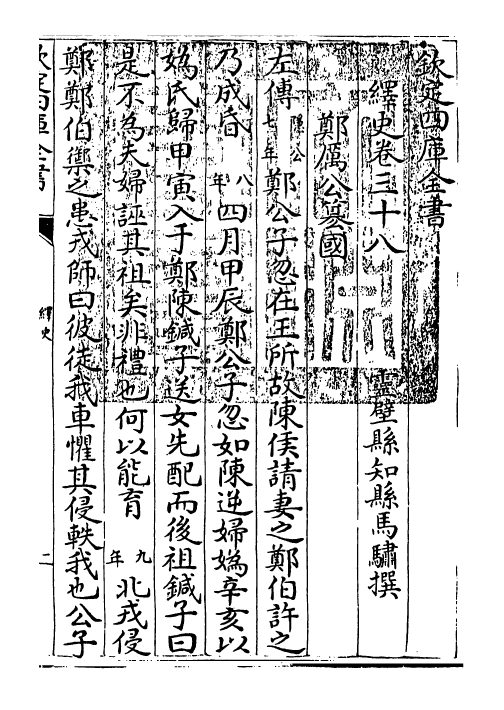 欽定四庫全書
繹史卷三十八
靈壁縣知縣馬驌撰
鄭厲公簒國
左傳隱公七年鄭公子忽在王所故陳侯請妻之鄭伯許之
乃成昏八年四月甲辰鄭公子忽如陳逆婦嬀辛亥以
嬀氏歸甲寅入于鄭陳鍼子送女先配而後祖鍼子曰
是不為夫婦誣其祖矣非禮也何以能育九年北戎侵
鄭鄭伯禦之患戎師曰彼徒我車懼其侵軼我也公子
欽定四庫全書
繹史
二